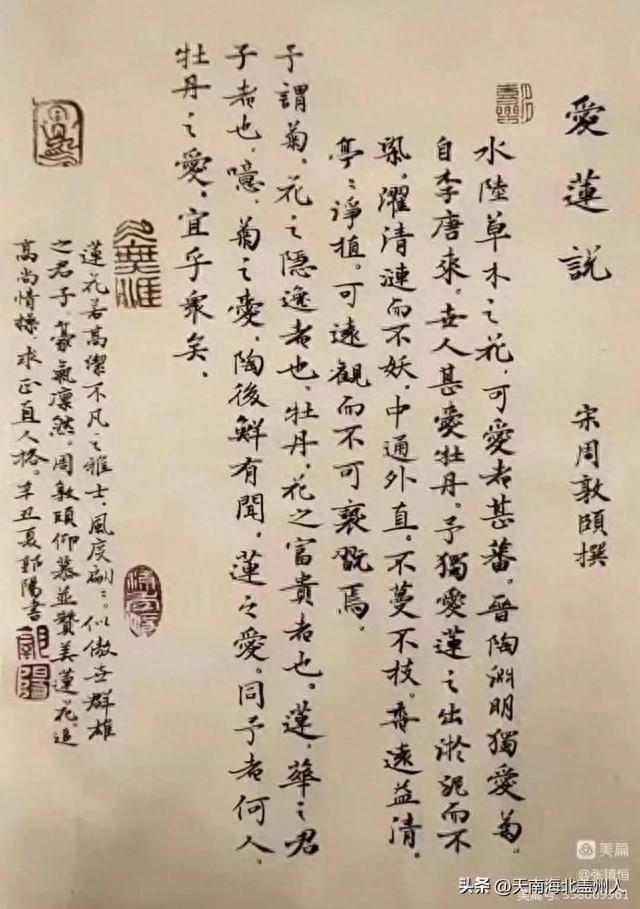 愛蓮說
宋周敦頤撰
水陸草木之花，可愛者甚蕃。晉陶淵明獨愛菊。
自李唐來，世人甚愛牡丹。予獨愛蓮之出淤泥而不
染，濯清漣而不妖，中通外直，不蔓不枝。香遠益清，
亭〻淨植。可遠觀而不可褻翫焉。
予謂菊，花之隱逸者也。牡丹，花之富貴者也。蓮，華之君
子者也。噫，菊之愛，陶後鮮有聞。蓮之愛，同予者何人，
牡丹之愛，宜乎衆矣。
蓮花若高潔不凡之雅士，風度翩〻。似傲世群雄
之君子，豪氣凛然。周敦頤仰慕並贊美蓮花，追
高尚情操，求正直人格。辛丑夏郭陽書
郭陽
美篇
@张镇恒
美篇号：338069961
头条 @天南海北盖州人